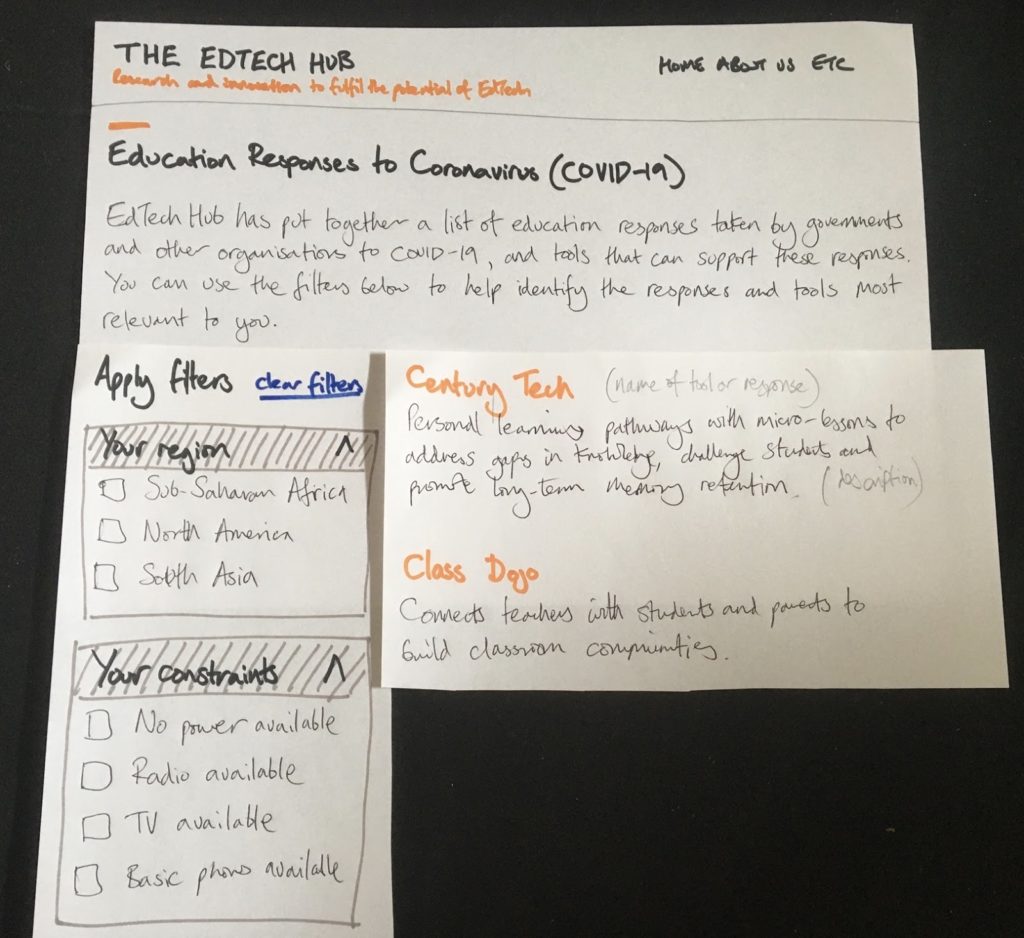 THE EDTECH HUB
Research and innovation to fulfil the potential of EdTech
HOME ABOUT US ETC
Education Responses to Coronavirus (COVID-19)
EdTech Hub has put together a list of education responses taken by governments
and other organisations to COVID-19, and tools that can support these responses.
You can use the filters below to help identify the responses and tools most
relevant to you.
Apply filters clear filters
Your region ^
Sub-Saharan Africa
North America
South Asia
Your constraints ^
No power available
Radio available
TV available
Basic phone available
Century Tech (name of tool or response)
Personal learning pathways with micro-lessons to
address gaps in knowledge, challenge students and
promote long-term memory retention. (description)
Class Dojo
Connects teachers with students and parents to
build classroom communities.